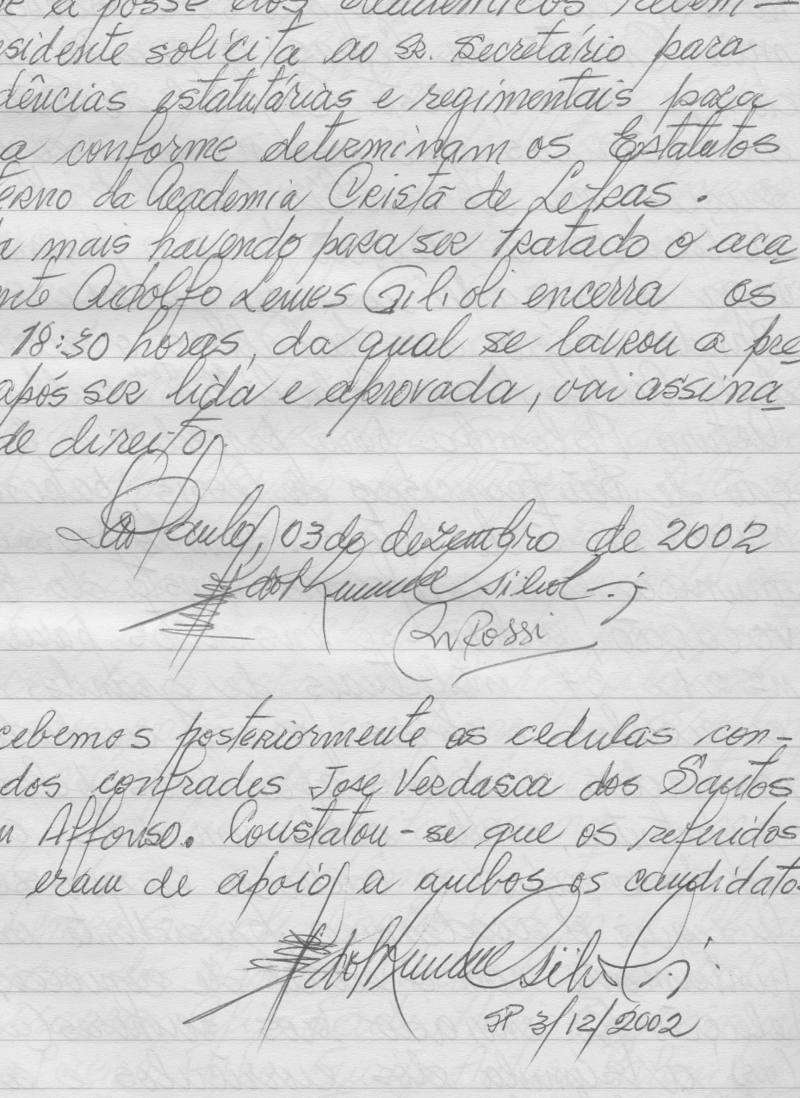 e a posse dos academicos recém-
esidente solicita ao sr. secretário para
dências estatutárias e regimentais para
a conforme determinam os Estatutos
erno da Academia Cristã de Letras.
a mais havendo para ser tratado o aca
nte Adolfo Lemes Gilioli encerra os
18:30 horas, da qual se lavrou a pre
após ser lida e aprovada, vai assina
de direito
São Paulo, 03 de dezembro de 2002
Rossi
cebemos posteriormente as cedulas con-
dos confrades Jose Verdasca dos Santos
Affonso. Constatou-se que os referidos
eram de apoio a ambos os candidato
SP 3/12/2002